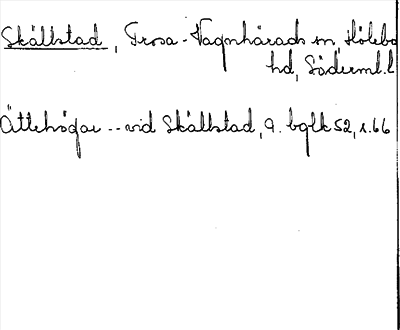 Skällstad, Trosa-Vagnhärads sn, Hölebo
hd, Söderml.l
Ättehögar -- vid Skällstad, 9. bglk 52, s.66